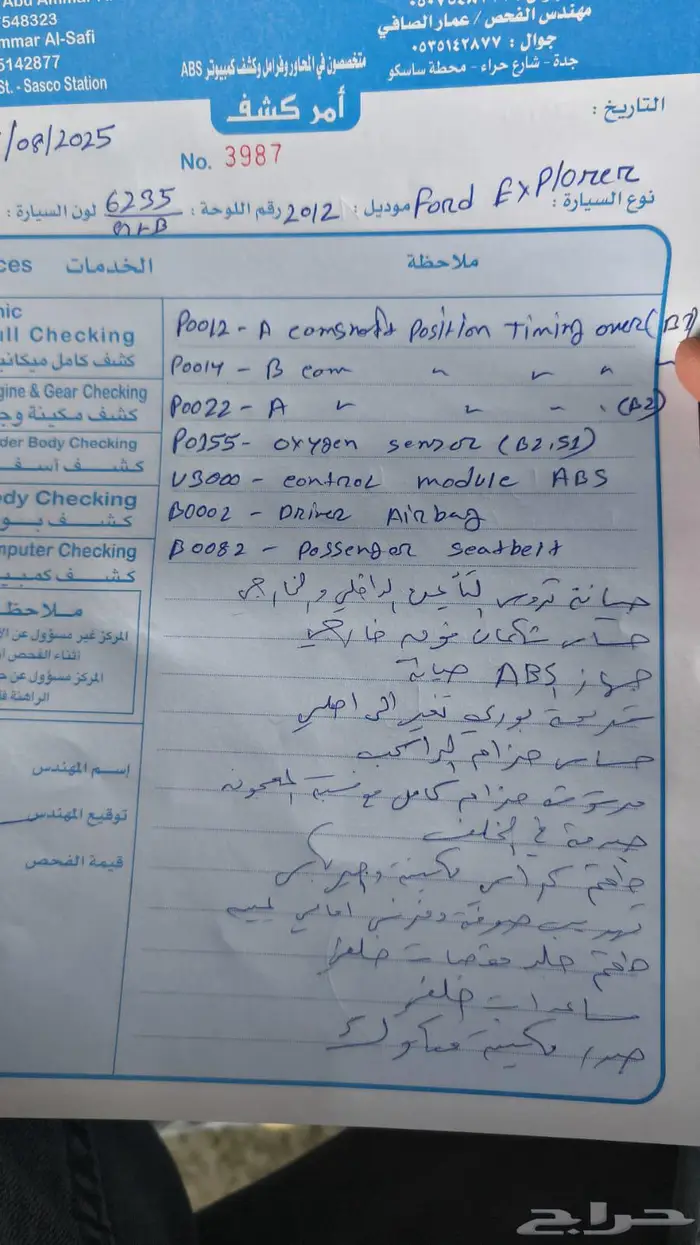 548323
مهندس الفحص / عمار الصافي
mmar Al-Safi
جوال : ٠٥٣٥١٤٢٨٧٧
5142877
جدة - شارع حراء - محطة ساسكو
St. - Sasco Station
متخصصون في المحاور وفرامل وكشف كمبيوتر ABS
أمر كشف
التاريخ :
/08/2025
No. 3987
نوع السيارة : Ford Explorer موديل : 2012 رقم اللوحة : 6235 لون السيارة :
ملاحظة
الخدمات
ces
P0012 - A camshaft Position Timing over (B1)
P0014 - B cam " " "
P0022 - A " " " (B2)
P0155 - oxygen sensor (B2,S1)
U3000 - control module ABS
B0002 - Driver Airbag
B0082 - Passenger seatbelt
صيانة تروس التايمن الداخلي والخارجي
حساس شكمان فوق خارجي
جهاز ABS صيانة
شريحة بوري تغير الى اصلي
حساس حزام الراكب
مرشوش حزام كامل مع نسبة المعجون
صدمة في الخلف
طقم كراسي مكينة وجيربكس
تهريب صوفة دفرنس امامي يمين
طقم جلد مقصات خلفي
مساعدات خلفي
صدر مكينة مفكوك
nic
ull Checking
كشف كامل ميكاني
gine & Gear Checking
كشف مكينة وج
der Body Checking
كشف أسف
ody Checking
كشف بو
mputer Checking
كشف كمبي
ملاحظ
المركز غير مسؤول عن الأ
أثناء الفحص أ
المركز مسؤول عن ح
الراهنة ف
إسم المهندس
توقيع المهندس
قيمة الفحص
حراج